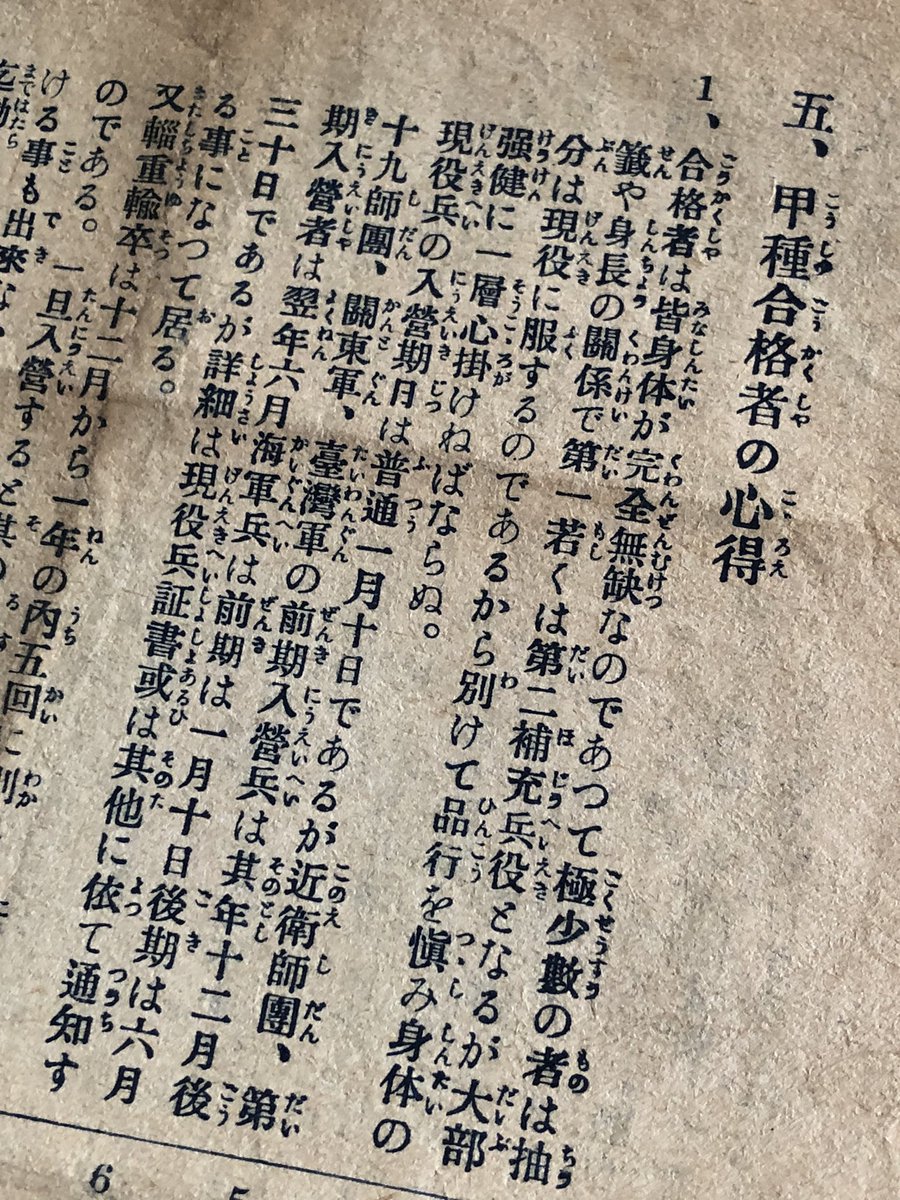 五、甲種合格者の心得
1、合格者は皆身体が完全無缺なのであつて極少數の者は抽
籤や身長の關係で第一若くは第二補充兵役となるが大部
分は現役に服するのであるから別けて品行を愼み身体の
强健に一層心掛けねばならぬ。
現役兵の入營期日は普通一月十日であるが近衛師團、第
十九師團、關東軍、臺灣軍の前期入營兵は其年十二月後
期入營者は翌年六月海軍兵は前期は一月十日後期は六月
三十日であるが詳細は現役兵証書或は其他に依て通知す
る事になつて居る。
又輜重輸卒は十二月から一年の內五回に別
のである。一旦入營すると其の
ける事も出來な
6
5